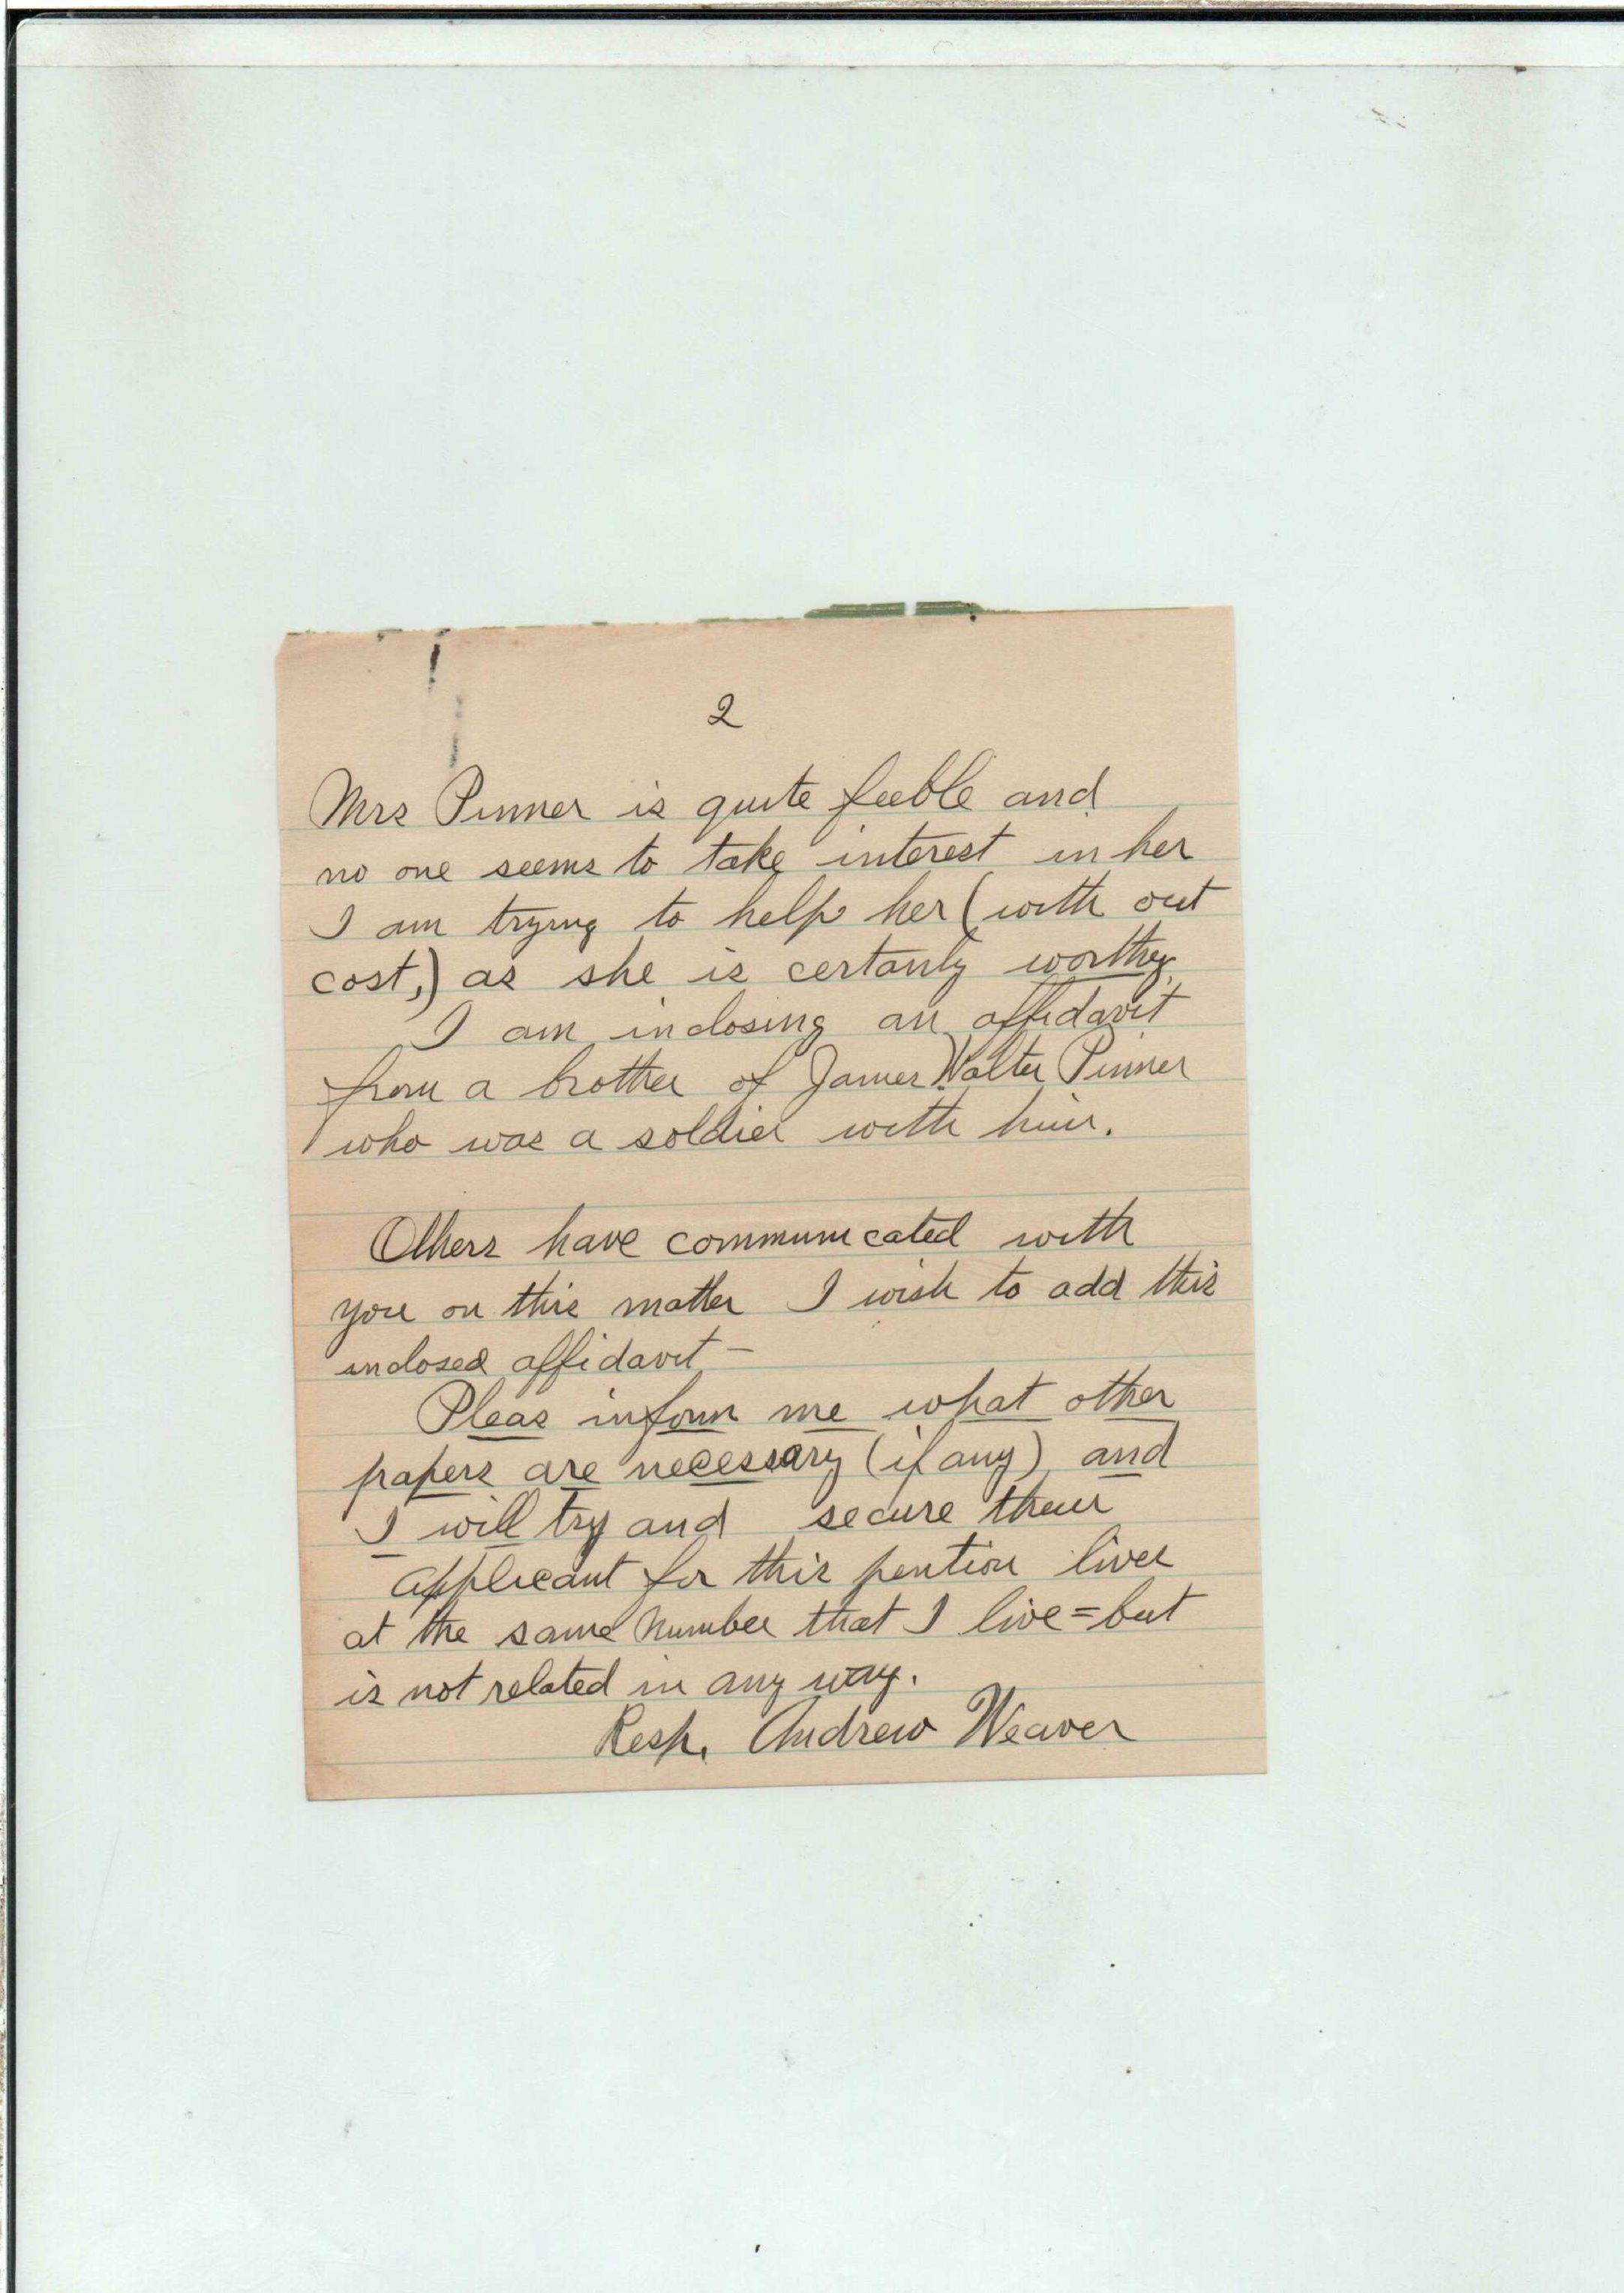 2
Mrs Pinner is quite feeble and
no one seems to take interest in her
I am trying to help her (with out
cost,) as she is certanly worthy.
I am inclosing an affidavit
from a brother of James Walter Pinner
who was a soldier with him.
Others have communicated with
you on this matter I wish to add this
inclosed affidavit —
Pleas inform me what other
papers are necessary (if any) and
I will try and secure them
applicant for this pention lives
at the same number that I live = but
is not related in any way.
Resp. Andrew Weaver